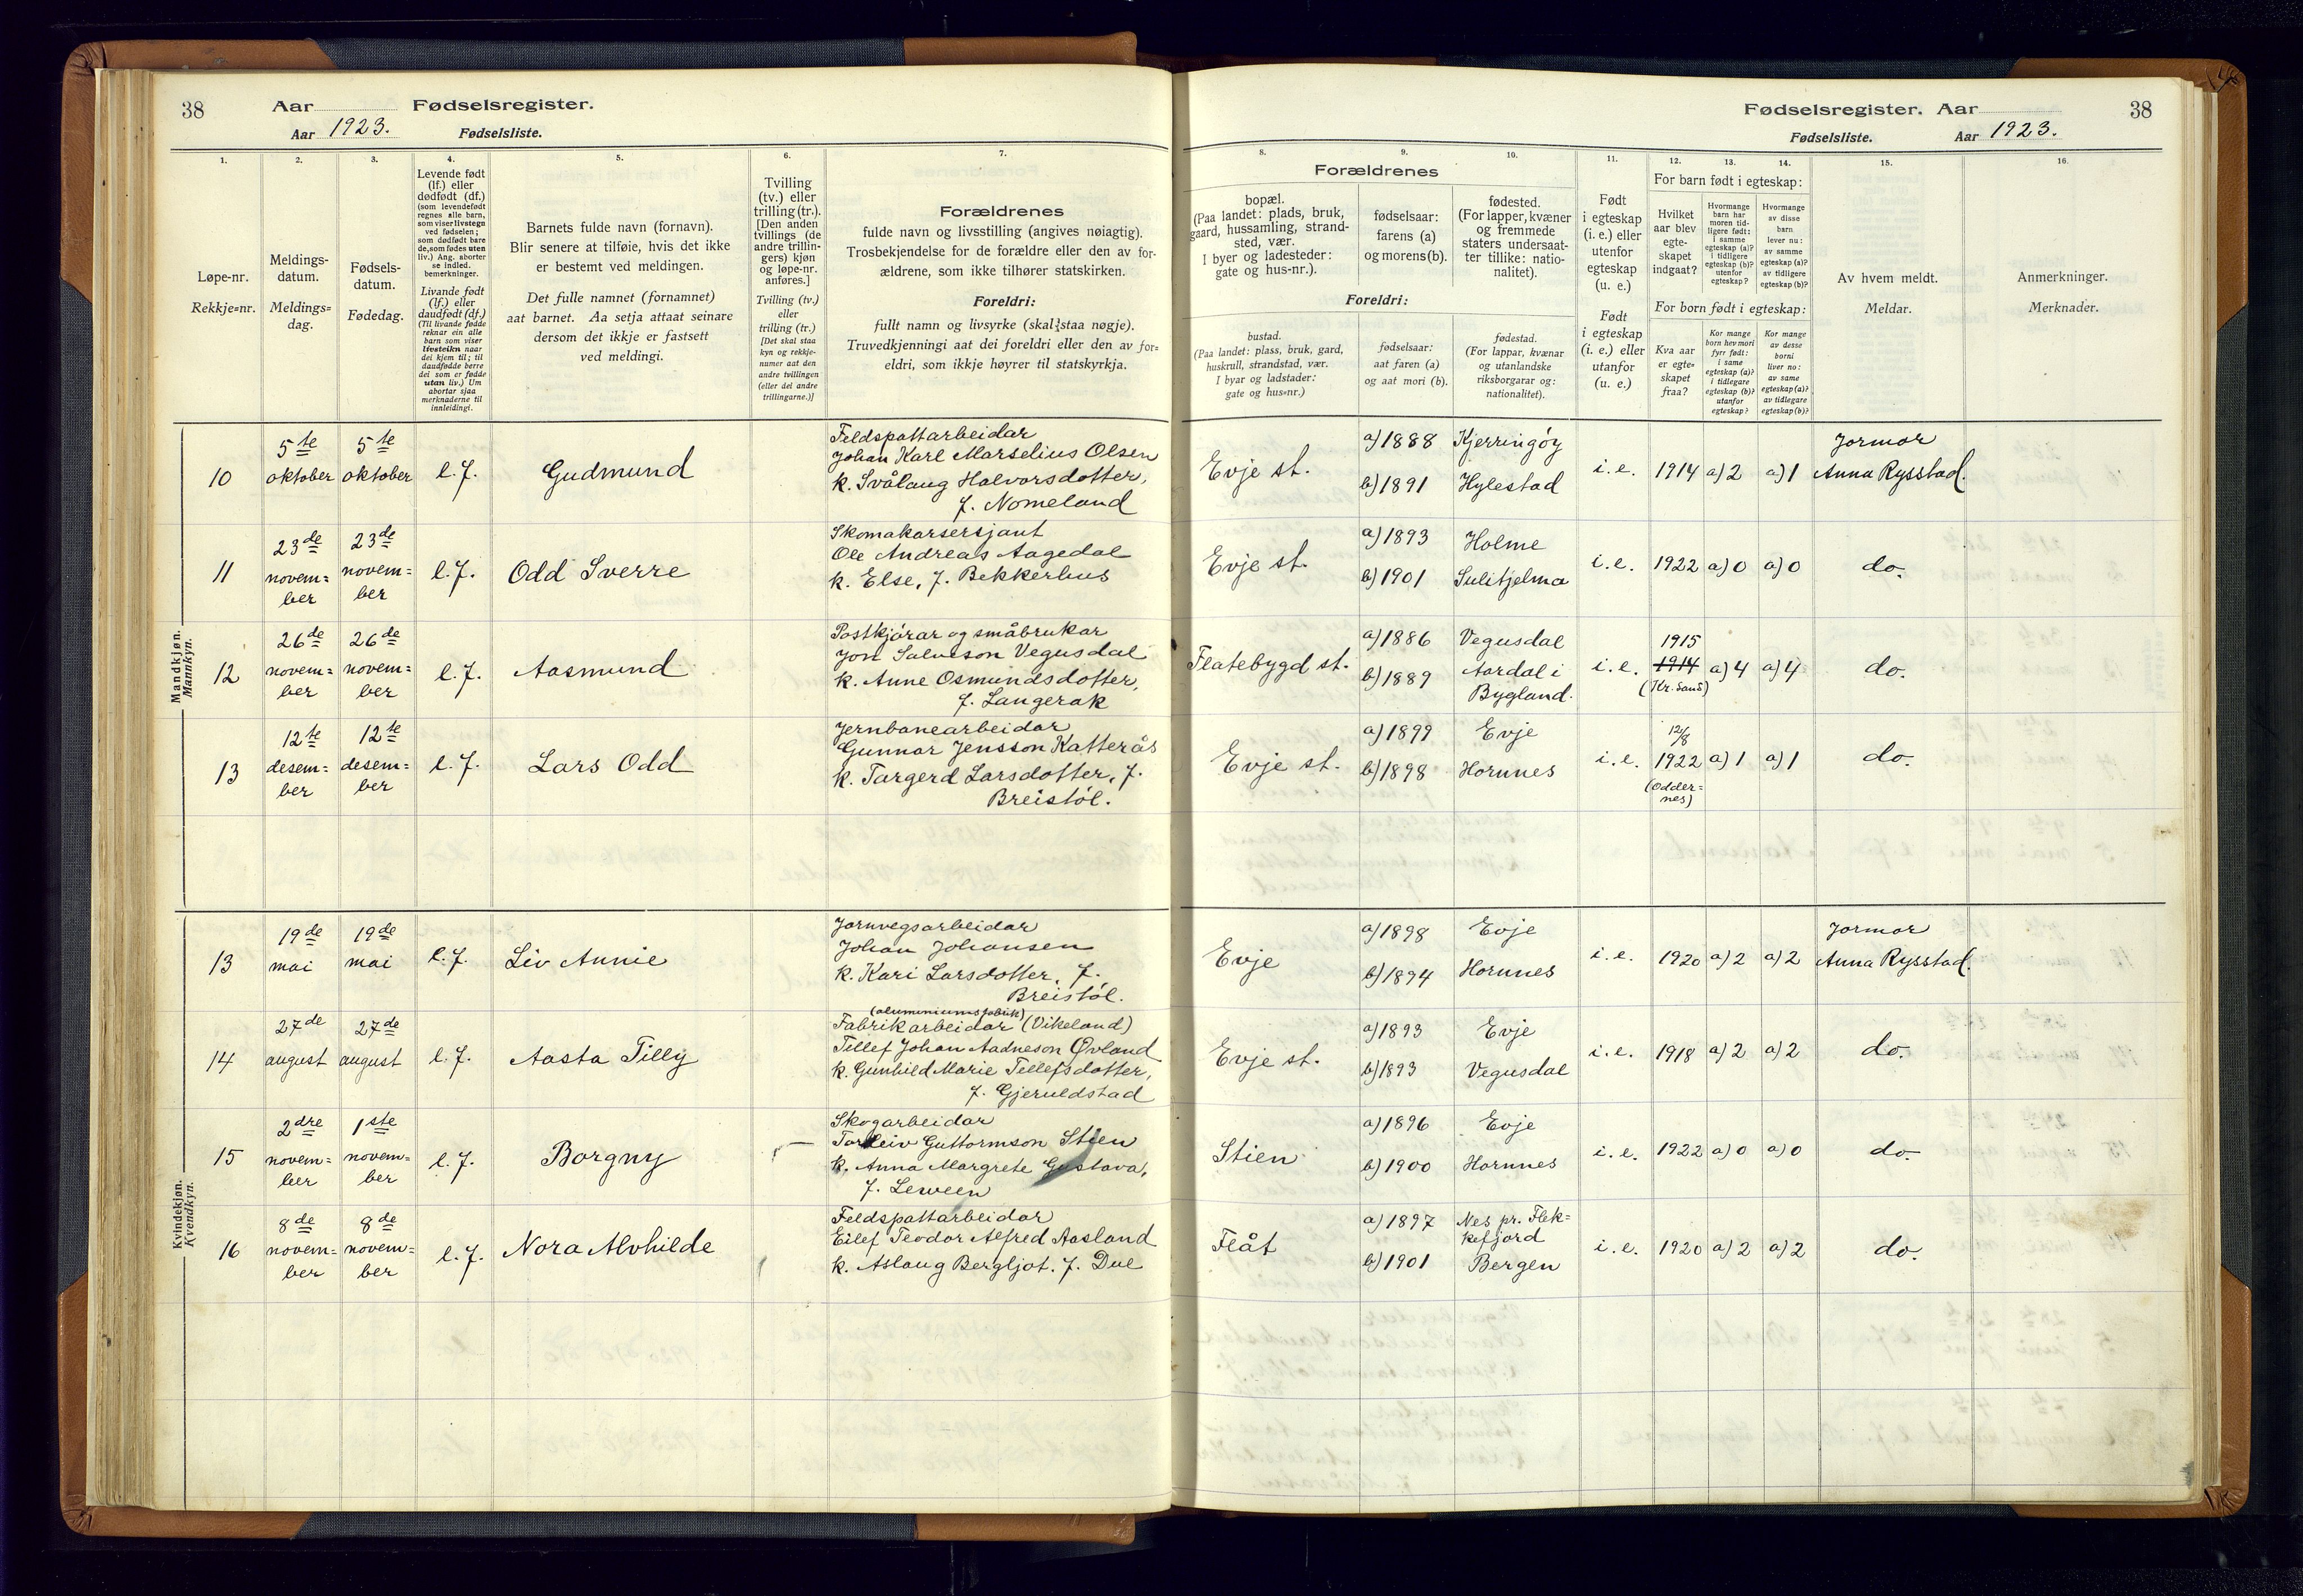 38 Aar Fødselsregister.
Aar 1923. Fødselsliste.
1.
2.
3.
4.
5.
6.
7.
Løpe-nr.
Rekkje=nr.
Meldings-
datum.
Meldings=
dag.
Fødsels-
datum.
Fødedag.
Levende født
(lf.) eller
dødfødt (df.)
(som levendefødt
regnes alle barn,
som viser livstegn
ved fødselen;
som dødfødt bare
de, som fødes uten
liv.) Ang. aborter
se indled.
bemerkninger.
Livande født
(lf.) eller
daudfødt (df.)
(Til livande fødde
reknar ein alle
barn som viser
lfvsteikn naar
dei kjem til; til
daudfødde berre
dei som er fødde
utan liv.) Um
abortar sjaa
merknaderne til
innleidingi.
Barnets fulde navn (fornavn).
Blir senere at tilføie, hvis det ikke
er bestemt ved meldingen.
Det fulle namnet (fornamnet)
aat barnet. Aa setja attaat seinare
dersom det ikkje er fastsett
ved meldingi.
Tvilling
(tv.) eller
trilling (tr.).
[Den anden
tvillings (de
andre trillin-
gers) kjøn
og løpe-nr.
anføres.]
Tvilling (tv.)
eller
trilling (tr.)
[Det skal staa
kyn og rekkje-
numer aat den
andre tvillingen
(eller dei andre
trillingarne.)]
Forældrenes
fulde navn og livsstilling (angives nøiagtig).
Trosbekjendelse for de forældre eller den av for-
ældrene, som ikke tilhører statskirken.
Foreldri:
fullt namn og livsyrke (skal staa nøgje).
Truvedkjenningi aat dei foreldri eller den av for=
eldri, som ikkje høyrer til statskyrkja.
Mandkjøn.
Mannkyn.
10
5te
oktober
5te
oktober
l.f.
Gudmund
Feldspattarbeidar
Johan Karl Marselius Olsen
k. Svålaug Halvorsdotter,
f. Nomeland
11
23de
novem=
ber
23de
novem=
ber
l.f.
Odd Sverre
Skomakarsersjant
Ole Andreas Aagedal
k. Else, f. Bekkerhus
12
26de
novem=
ber
26de
novem=
ber
l.f.
Aasmund
Postkjörar og småbrukar
Jon Salveson Vegusdal
k. Anne Osmundsdotter,
f. Langerak
13
12te
desem=
ber
12te
desem=
ber
l.f.
Lars Odd
Jernbanearbeidar
Gunnar Jensson Katterås
k. Targerd Larsdotter, f.
Breistöl.
Kvindekjøn.
Kvendkyn.
13
19de
mai
19de
mai
l.f.
Liv Annie
Jarnvegsarbeidar
Johan Johansen
k. Kari Larsdotter, f.
Breistöl.
14
27de
august
27de
august
l.f.
Aasta Tilly
(aluminiumsfabrik)
Fabrikarbeidar (Vikeland)
Tellef Johan Aadneson Øvland
k. Gunhild Marie Tellefsdotter,
f. Gjeruldstad
15
2dre
novem=
ber
1ste
novem=
ber
l.f.
Borgny
Skogarbeidar
Tarleiv Guttormson Stien
k. Anna Margrete Gustava,
f. Leween
16
8de
novem=
ber
8de
novem=
ber
l.f.
Nora Alvhilde
Feldspattarbeidar
Eilef Teodor Alfred Aasland
k. Aslaug Bergljot. f. Due
Fødselsregister. Aar 38
Fødselsliste. Aar 1923.
8.
9.
10.
11.
12.
13.
14.
15.
16.
Forældrenes
bopæl.
(Paa landet: plads, bruk,
gaard, hussamling, strand-
sted, vær.
I byer og ladesteder:
gate og hus-nr.).
fødselsaar:
farens (a)
og morens (b).
fødested.
(For lapper, kvæner
og fremmede
staters undersaat-
ter tillike: natio-
nalitet).
Foreldri:
bustad.
(Paa landet: plass, bruk, gard,
huskrull, strandstad, vær.
I byar og ladstader:
gate og hus=nr.)
fødselsaar:
aat faren (a)
og aat mori (b).
fødestad.
(For lappar, kvænar
og utanlandske
riksborgarar og:
nationalitet).
Født
i egteskap
(i. e.) eller
utenfor
egteskap
(u. e.)
Født
i egteskap
(i. e.) eller
utanfor
(u. e.)
For barn født i egteskap:
Hvilket
aar blev
egte-
skapet
indgaat?
Hvormange
barn har
moren tid-
ligere født:
i samme
egteskap (a)?
i tidligere
egteskap (b)?
utenfor
egteskap?
Hvormange
av disse
barn
lever nu:
av samme
egteskap (a)?
av tidligere
egteskap (b)?
For born født i egteskap:
Kva aar
er egte=
skapet
fraa?
Kor mange
born hev mori
fyrr født:
i same
egteskap (a)?
i tidlegare
egteskap (b)?
utanfor
egteskap?
Kor mange
av desse
borni
liver no:
av same
egteskap (a)?
av tidlegare
egteskap (b)?
Av hvem meldt.
Meldar.
Anmerkninger.
Merknader.
Evje st.
a) 1888
b) 1891
Kjerringöy
Hylestad
i.e.
1914
a) 2
a) 1
Jormor
Anna Rysstad.
Evje st.
a) 1893
b) 1901
Holme
Sulitjelma
i.e.
1922
a) 0
a) 0
do.
Flatebygd st.
a) 1886
b) 1889
Vegusdal
Aardal i
Bygland.
i.e.
1915
1914
(Kr.sand)
a) 4
a) 4
do.
Evje st.
a) 1899
b) 1898
Evje
Hornnes
i.e.
12/8
1922
(Odder=
nes)
a) 1
a) 1
do.
Evje
a) 1898
b) 1894
Evje
Hornnes
i.e.
1920
a) 2
a) 2
Jormor
Anna Rysstad.
Evje st.
a) 1893
b) 1893
Evje
Vegusdal
i.e.
1918
a) 2
a) 2
do.
Stien
a) 1896
b) 1900
Evje
Hornnes
i.e.
1922
a) 0
a) 0
do.
Flåt
a) 1897
b) 1901
Nes pr. Flek=
kefjord
Bergen
i.e.
1920
a) 2
a) 2
do.